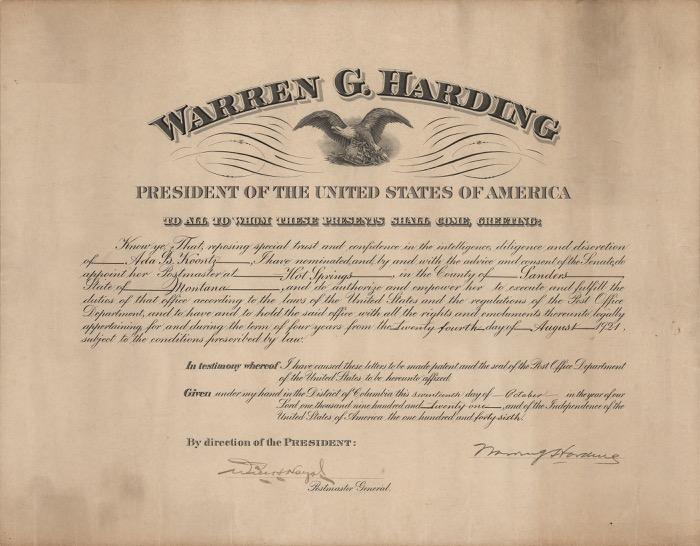 WARREN G. HARDING
PRESIDENT OF THE UNITED STATES OF AMERICA
TO ALL TO WHOM THESE PRESENTS SHALL COME, GREETING:
Know ye, That, reposing special trust and confidence in the intelligence, diligence and discretion
of Ada B. Koontz, I have nominated, and, by and with the advice and consent of the Senate, do
appoint her Postmaster at Hot Springs, in the County of Sanders
State of Montana, and do authorize and empower her to execute and fulfill the
duties of that office according to the laws of the United States and the regulations of the Post Office
Department, and to have and to hold the said office with all the rights and emoluments thereunto legally
appertaining, for and during the term of four years from the twenty fourth day of August 1921.
subject to the conditions prescribed by law.
In testimony whereof I have caused these letters to be made patent and the seal of the Post Office Department
of the United States to be hereunto affixed.
Given under my hand in the District of Columbia this day of October in the year of our
Lord one thousand nine hundred and twenty one, and of the Independence of the
United States of America the one hundred and forty sixth.
By direction of the PRESIDENT:
Warren G Harding
Will H Hays
Postmaster General.